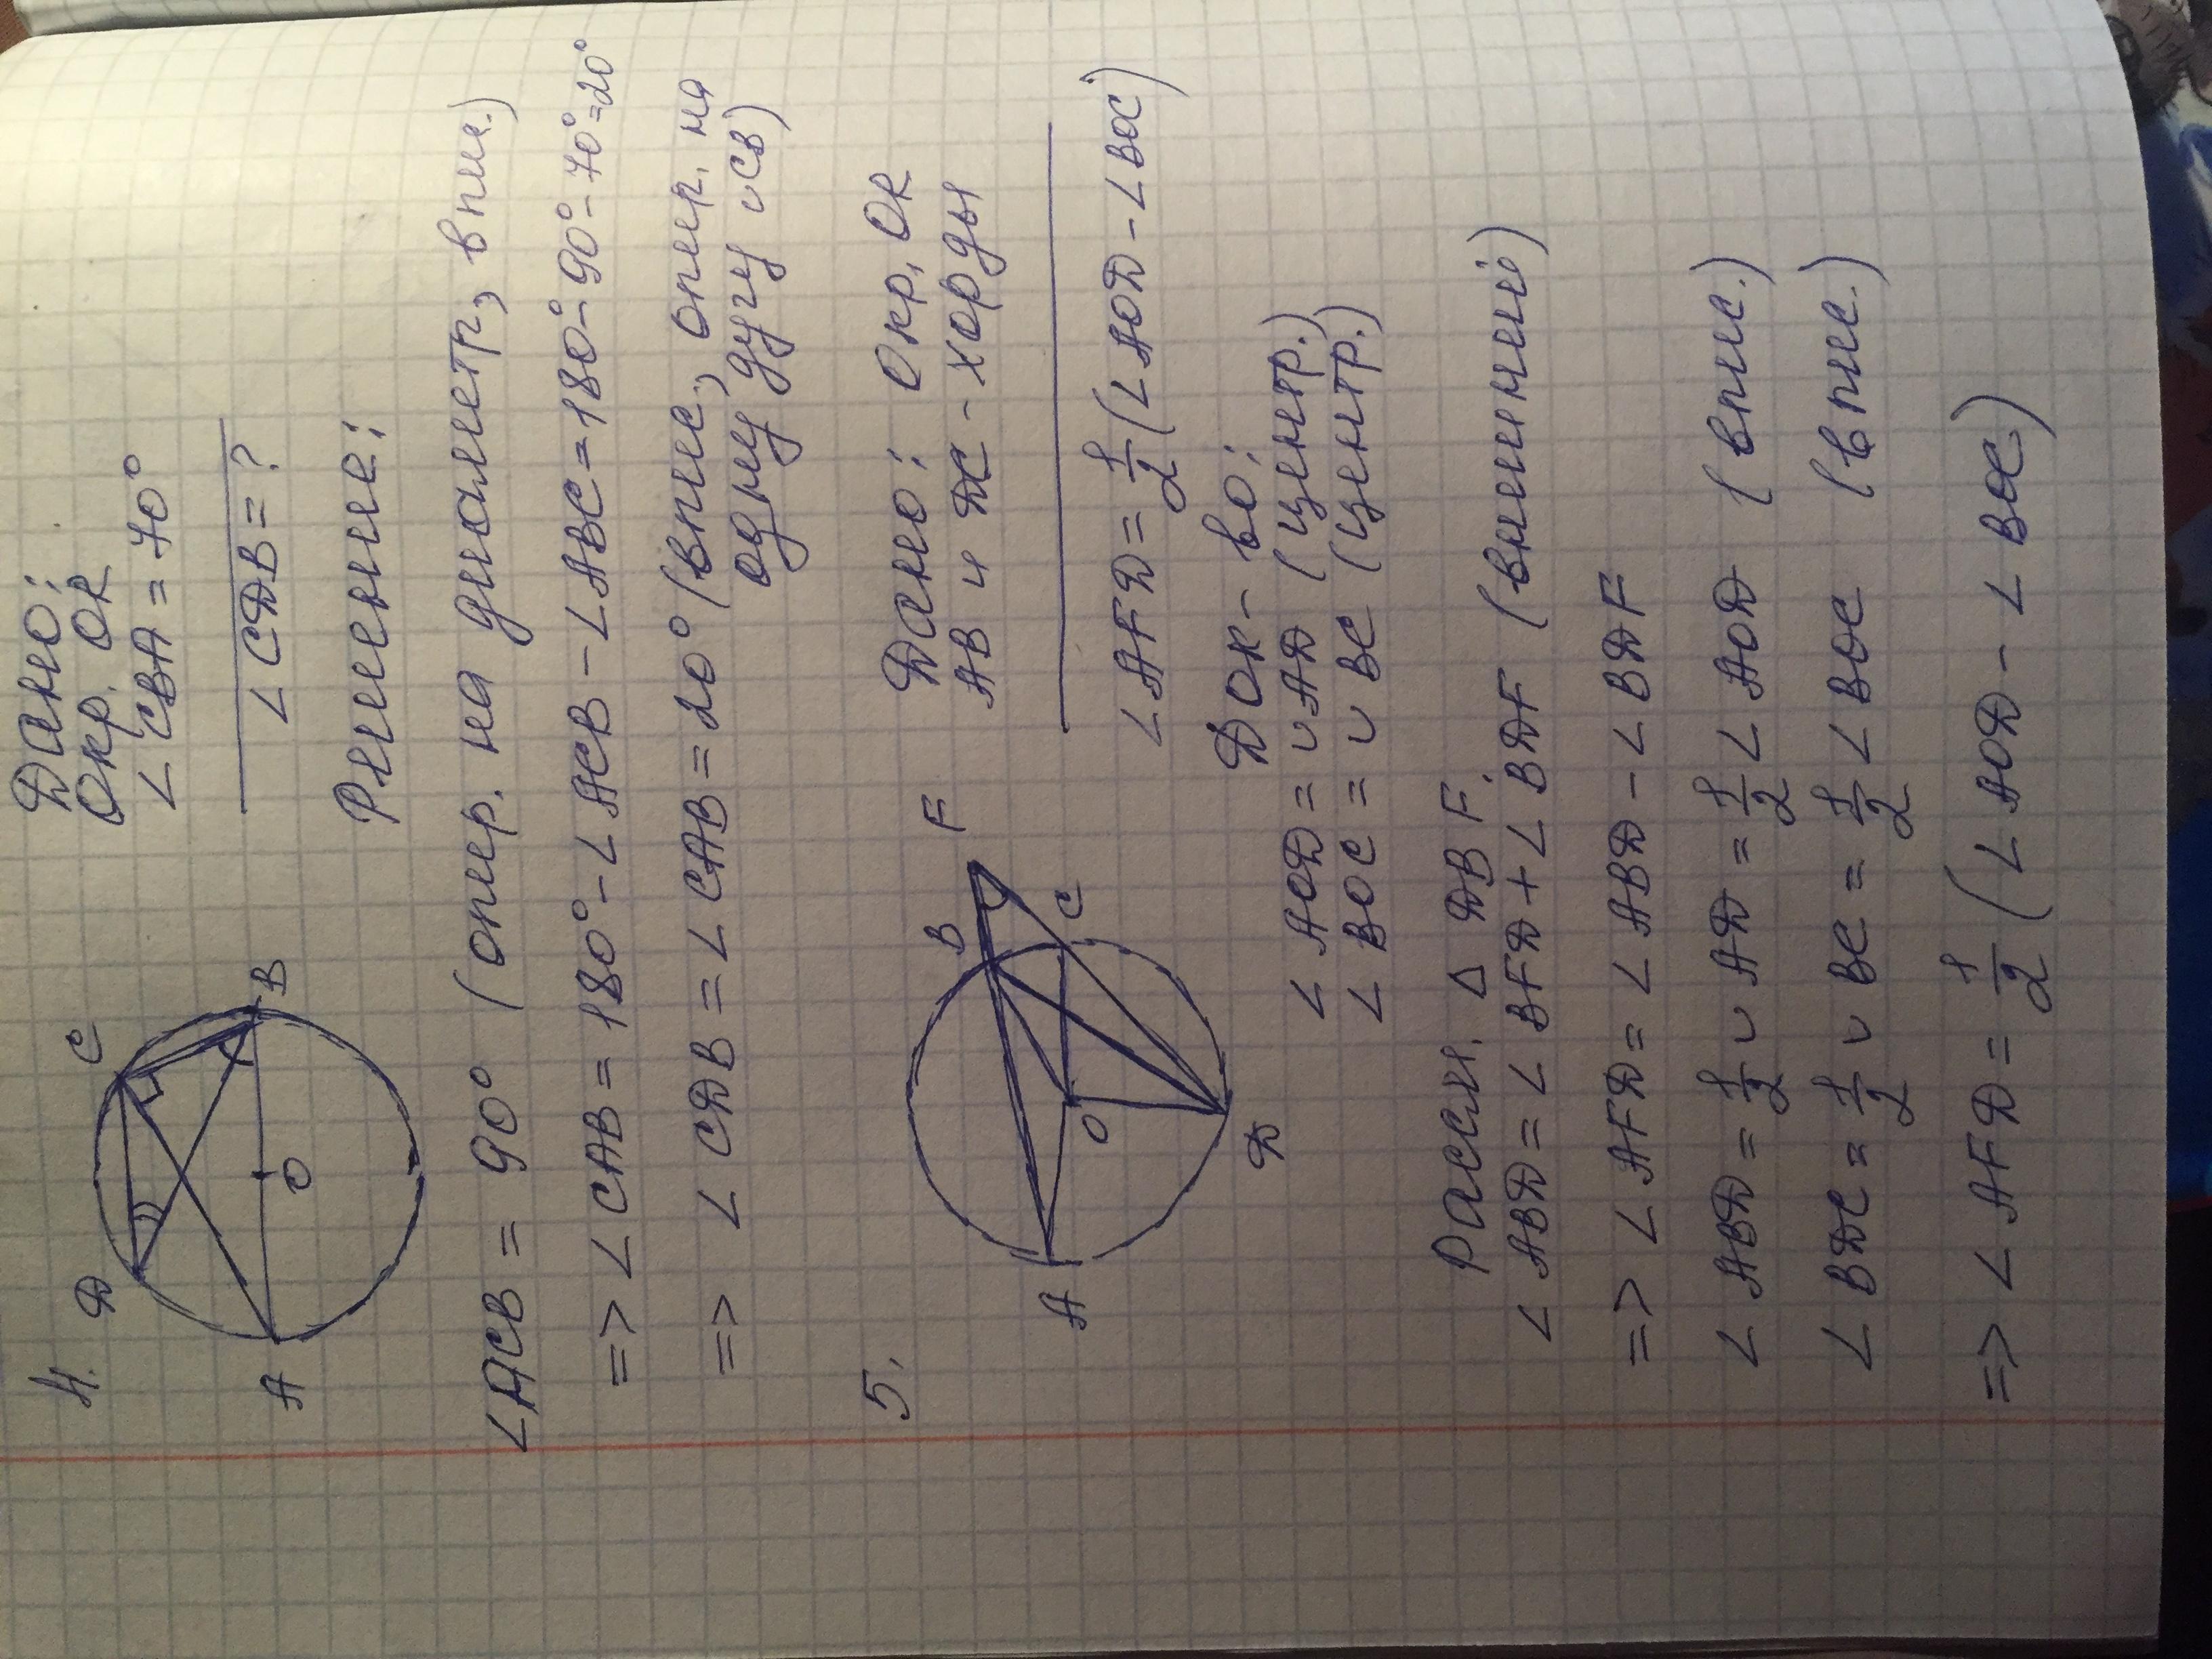 4.
D
C
A
O
B
Дано:
Окр. OR
∠CBA = 70°
∠CDB = ?
Решение:
∠ACB = 90° (опир. на диаметр, впис.)
=> ∠CAB = 180° - ∠ACB - ∠ABC = 180° - 90° - 70° = 20°
=> ∠CDB = ∠CAB = 20° (впис., опир. на
одну дугу ◡CB)
5.
A
B
F
C
O
D
Дано: Окр. OR
AB и DC - хорды
∠AFD = 1/2 (∠AOD - ∠BOC)
Док-во:
∠AOD = ◡AD (центр.)
∠BOC = ◡BC (центр.)
Рассм. △DBF.
∠ABD = ∠BFD + ∠BDF (внешний)
=> ∠AFD = ∠ABD - ∠BDF
∠ABD = 1/2 ◡AD = 1/2 ∠AOD (впис.)
∠BDC = 1/2 ◡BC = 1/2 ∠BOC (впис.)
=> ∠AFD = 1/2 (∠AOD - ∠BOC)